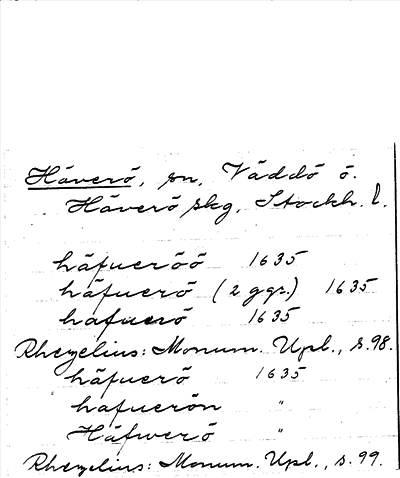 Häverö, sn, Väddö ö.
Häverö skg, Stockh. l.
häfueröö 1635
häfuerö (2 ggr.) 1635
hafuerö 1635
Rhezelius: Monum. Upl., s. 98.
häfuerö 1635
hafuerön "
Häfwerö "
Rhezelius: Monum. Upl., s. 99.